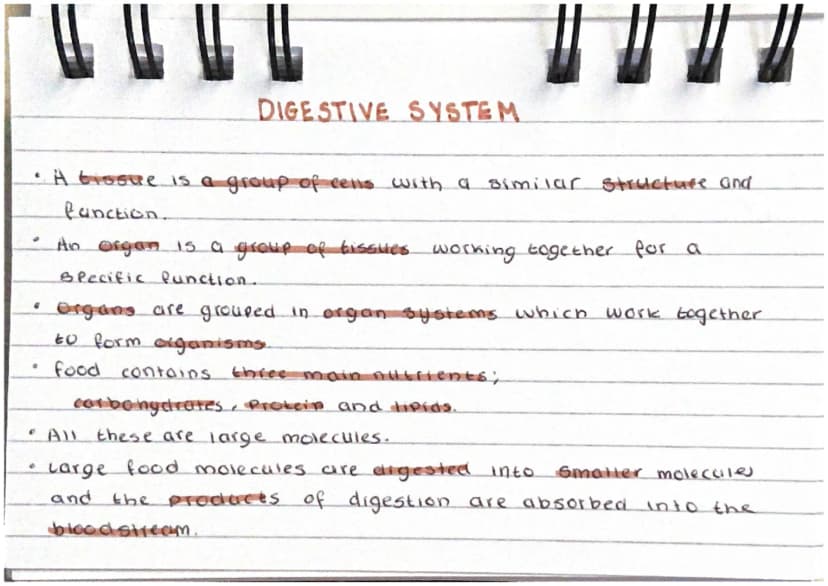 DIGESTIVE SYSTEM
• A tissue is a group of cells with a similar structure and
function.
• An organ is a group of tissues working together for a
specific function.
• organs are grouped in organ systems which work together
to form organisms.
• food contains three main nutrients;
carbohydrates, protein and lipids.
• All these are large molecules.
• Large food molecules are digested into smaller molecules
and the products of digestion are absorbed into the
bloodstream.